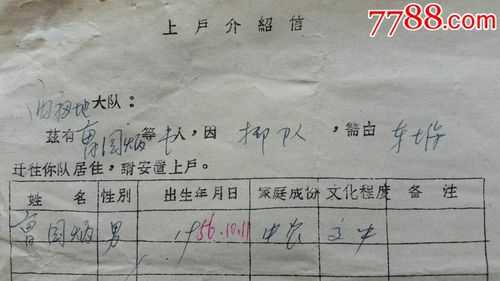 7788.com
上户介紹信
大队：
茲有曹国炳等 人，因 ，需由
迁往你队居住，請安置上户。
姓名 性別 出生年月日 家庭成份 文化程度 备注
曹国炳 男 1956.10.11 中农 文中